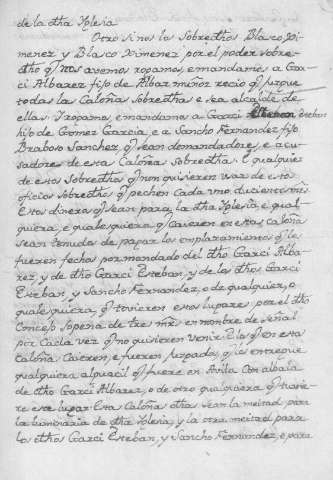 de la dha Iglesia
Otro si nos los Sobredhos Blasco Xi-
menez y Blasco Ximenez por el poder sobre-
dho q̃ Nos avemos rogamos, e mandamos a Gar-
ci Albarez fijo de Albar muñoz recio q̃ juzgue
todas las Caloñas Sobredhas e sea alcalde de
ellas Y rogamos, e mandamos a Garci Esteban
hijo de Gomez Garcia, e a Sancho Fernandez fijo
Braboso Sanchez q̃ sean demandadores, e acu-
sadores de esta Caloña Sobredha. E qualquier
de estos Sobredhos q̃ non quisieren usar de estos
oficios Sobredhos q̃ pechen Cada uno ducientos mrs
Estos dineros q̃ sean para la dha Iglesia e qual-
quiera, e qualesquiera q̃ Caieren en estas caloña
sean tenudos de pagar los emplazamientos q̃ les
fueren fechos por mandado del dho Garci Alba-
rez, y de dho Garci Esteban, y de los dhos Garci
Esteban, y Sancho Fernandez, o de qualquier, o
qualesquiera, q̃ tovieren estos lugares por el dho
Concejo Sopena de tres mrs en nombre de Señal
por Cada vez q̃ no quisieren venir E los q̃ en esta
Caloña Caieren, e fueren juzgados, q̃ los entregue
qualquiera alguacil q̃ fuere en Avila Con albala
de dho Garci Albarez, o de otro qualquiera q̃ tovie-
re este lugar Esta Caloña dha sean la meitad para
la luminaria de dha Iglesia, y la otra meitad para
los dhos Garci Esteban, y Sancho Fernandez, o para